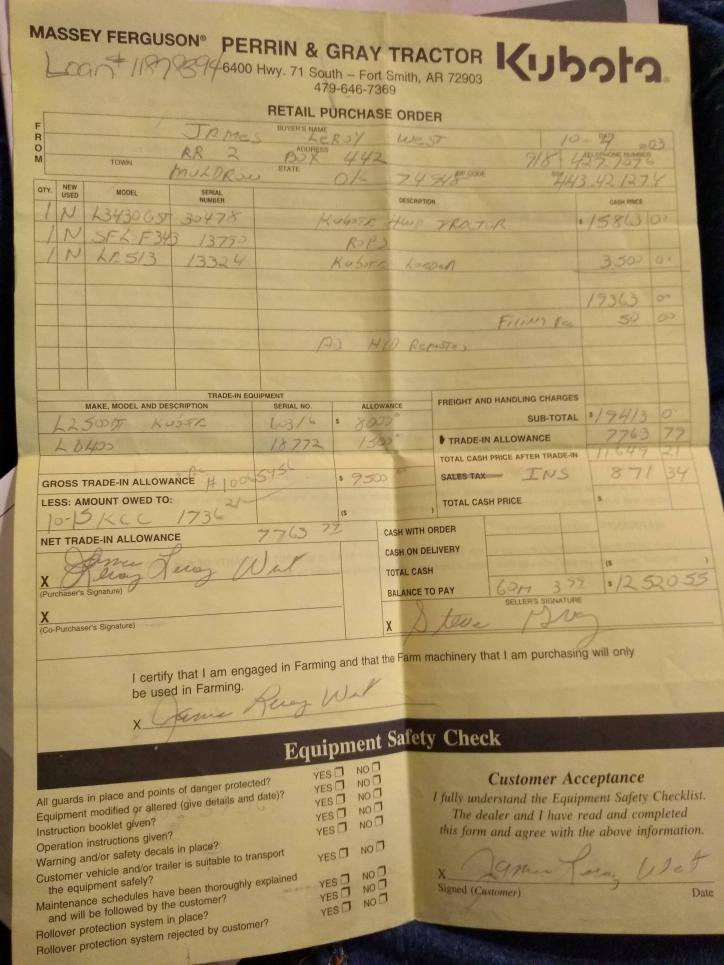 MASSEY FERGUSON® PERRIN & GRAY TRACTOR Kubota.
Loan# 11879394
6400 Hwy. 71 South – Fort Smith, AR 72903
479-646-7369
RETAIL PURCHASE ORDER
FROM
BUYER'S NAME
JAMES LEROY West
DATE
10- 03
ADDRESS
RR 2 Box 442
TELEPHONE NUMBER
918 427 1076
TOWN STATE ZIP CODE
MULDROW OK 74948
QTY. NEW USED MODEL SERIAL NUMBER DESCRIPTION CASH PRICE
1 N L3430GST 30478 Kubota HWD TRACTOR $ 15863 00
1 N SFL F343 13770 ROPS
1 N LA513 13324 Kubota Loader 3500 0.
19363 0.
Filing Fee 50 00
AD H/D Remotes
TRADE-IN EQUIPMENT
MAKE, MODEL AND DESCRIPTION SERIAL NO. ALLOWANCE
L2500DT Kubota 60316 $ 8000
LB400 18772 1500
FREIGHT AND HANDLING CHARGES
SUB-TOTAL $ 19413 0
TRADE-IN ALLOWANCE 7763 79
TOTAL CASH PRICE AFTER TRADE-IN 11649 21
SALES TAX INS 871 34
TOTAL CASH PRICE $
GROSS TRADE-IN ALLOWANCE $ 9500
LESS: AMOUNT OWED TO:
10-15 KCC 1736 21 ($ )
NET TRADE-IN ALLOWANCE 7763 79
CASH WITH ORDER
CASH ON DELIVERY
TOTAL CASH ($ )
BALANCE TO PAY 60m 3 99 $ 12520 55
X James Leroy West
(Purchaser's Signature)
X
(Co-Purchaser's Signature)
SELLER'S SIGNATURE
X Steve Gray
I certify that I am engaged in Farming and that the Farm machinery that I am purchasing will only
be used in Farming.
X James Leroy West
Equipment Safety Check
All guards in place and points of danger protected? YES NO
Equipment modified or altered (give details and date)? YES NO
Instruction booklet given? YES NO
Operation instructions given? YES NO
Warning and/or safety decals in place? YES NO
Customer vehicle and/or trailer is suitable to transport
the equipment safely? YES NO
Maintenance schedules have been thoroughly explained
and will be followed by the customer? YES NO
Rollover protection system in place? YES NO
Rollover protection system rejected by customer? YES NO
Customer Acceptance
I fully understand the Equipment Safety Checklist.
The dealer and I have read and completed
this form and agree with the above information.
X James Leroy West
Signed (Customer) Date